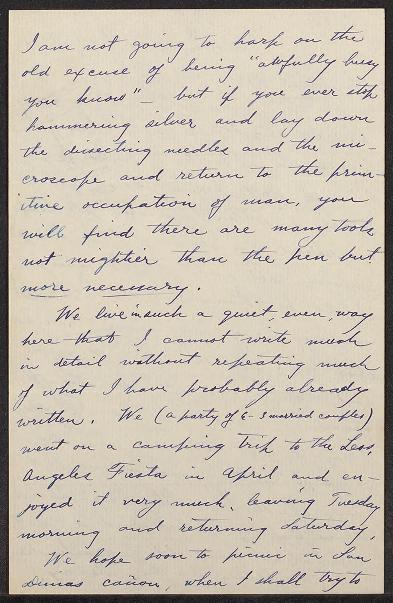 I am not going to harp on the
old excuse of being "awfully busy
you know" – but if you ever stop
hammering silver and lay down
the dissecting needles and the mi-
croscope and return to the prim-
itive occupation of man, you
will find there are many tools
not mightier than the pen but
more necessary.
We live in such a quiet, even, way
here that I cannot write much
in detail without repeating much
of what I have probably already
written. We (a party of 6 - 3 married couples)
went on a camping trip to the Los
Angeles Fiesta in April and en-
joyed it very much, leaving Tuesday
morning and returning Saturday,
We hope soon to picnic in San
Dimas cañon, when I shall try to